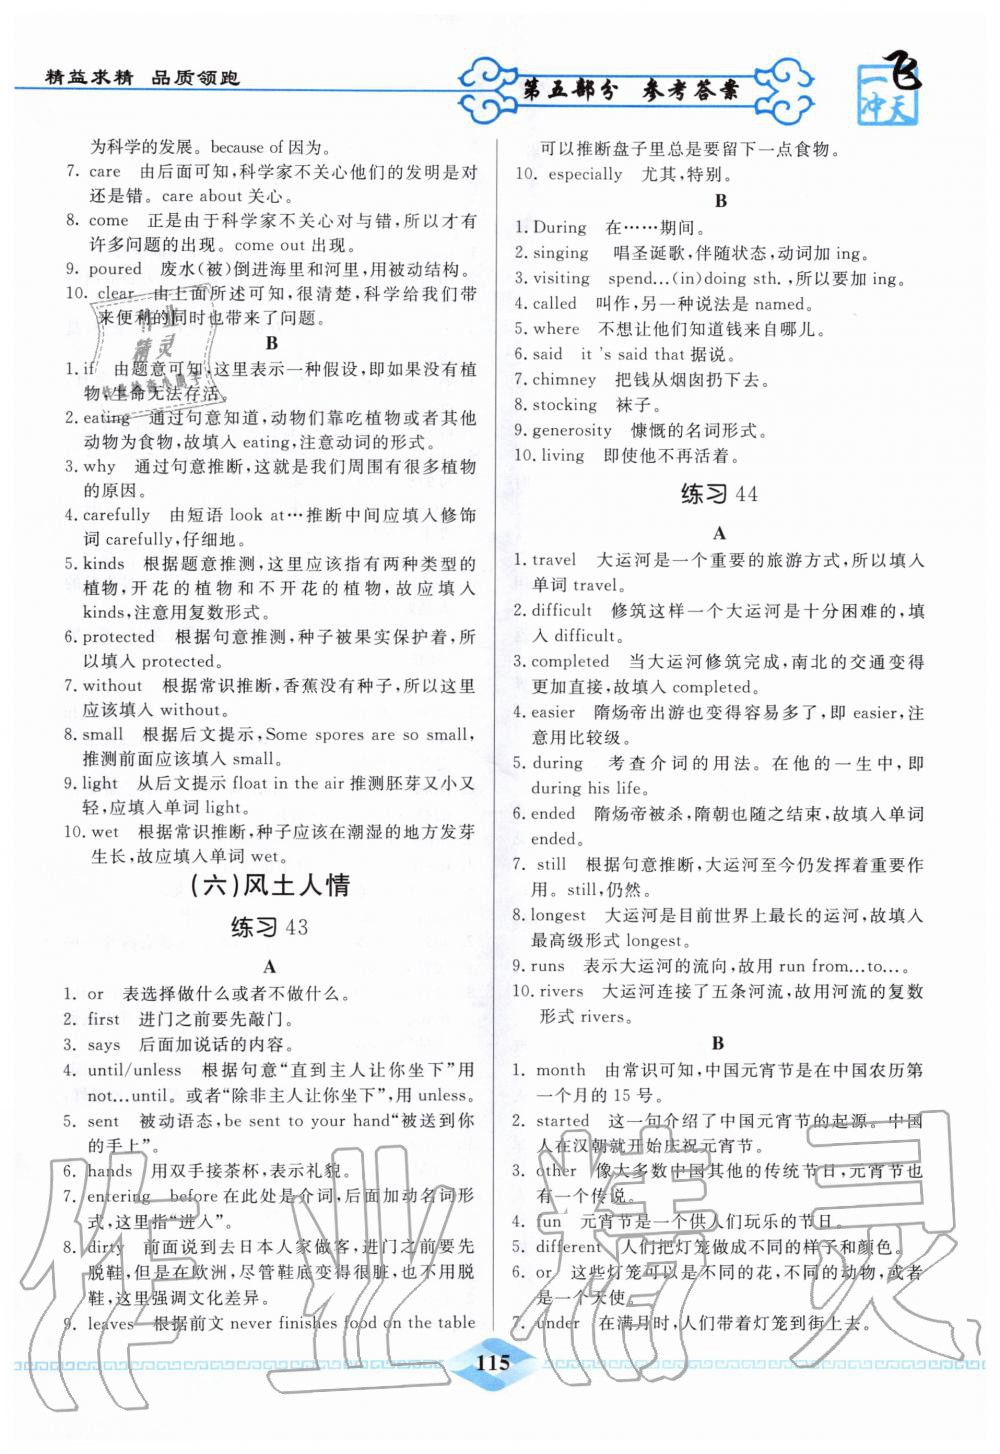 精益求精 品质领跑
第五部分 参考答案
飞
一
冲天
为科学的发展。because of因为。
7. care 由后面可知,科学家不关心他们的发明是对
还是错。care about关心。
8. come 正是由于科学家不关心对与错,所以才有
许多问题的出现。come out出现。
9. poured 废水(被)倒进海里和河里,用被动结构。
10. clear 由上面所述可知,很清楚,科学给我们带
来便利的同时也带来了问题。
B
1. if 由题意可知,这里表示一种假设,即如果没有植
物,生命无法存活。
2. eating 通过句意知道,动物们靠吃植物或者其他
动物为食物,故填入 eating,注意动词的形式。
3. why 通过句意推断,这就是我们周围有很多植物
的原因。
4. carefully 由短语 look at…推断中间应填入修饰
词 carefully,仔细地。
5. kinds 根据题意推测,这里应该指有两种类型的
植物,开花的植物和不开花的植物,故应填入
kinds,注意用复数形式。
6. protected 根据句意推测,种子被果实保护着,所
以填入 protected。
7. without 根据常识推断,香蕉没有种子,所以这里
应该填入 without。
8. small 根据后文提示,Some spores are so small,
推测前面应该填入 small。
9. light 从后文提示 float in the air 推测胚芽又小又
轻,应填入单词 light。
10. wet 根据常识推断,种子应该在潮湿的地方发芽
生长,故应填入单词 wet。
(六)风土人情
练习 43
A
1. or 表选择做什么或者不做什么。
2. first 进门之前要先敲门。
3. says 后面加说话的内容。
4. until/unless 根据句意“直到主人让你坐下”用
not…until。或者“除非主人让你坐下”,用 unless。
5. sent 被动语态,be sent to your hand“被送到你
的手上”。
6. hands 用双手接茶杯,表示礼貌。
7. entering before在此处是介词,后面加动名词形
式,这里指“进入”。
8. dirty 前面说到去日本人家做客,进门之前要先
脱鞋,但是在欧洲,尽管鞋底变得很脏,也不用脱
鞋,这里强调文化差异。
9. leaves 根据前文 never finishes food on the table
可以推断盘子里总是要留下一点食物。
10. especially 尤其,特别。
B
1. During 在……期间。
2. singing 唱圣诞歌,伴随状态,动词加 ing。
3. visiting spend…(in)doing sth. ,所以要加 ing。
4. called 叫作,另一种说法是 named。
5. where 不想让他们知道钱来自哪儿。
6. said it 's said that 据说。
7. chimney 把钱从烟囱扔下去。
8. stocking 袜子。
9. generosity 慷慨的名词形式。
10. living 即使他不再活着。
练习 44
A
1. travel 大运河是一个重要的旅游方式,所以填入
单词 travel。
2. difficult 修筑这样一个大运河是十分困难的,填
入 difficult。
3. completed 当大运河修筑完成,南北的交通变得
更加直接,故填入 completed。
4. easier 隋炀帝出游也变得容易多了,即 easier,注
意用比较级。
5. during 考查介词的用法。在他的一生中,即
during his life。
6. ended 隋炀帝被杀,隋朝也随之结束,故填入单词
ended。
7. still 根据句意推断,大运河至今仍发挥着重要作
用。still,仍然。
8. longest 大运河是目前世界上最长的运河,故填入
最高级形式 longest。
9. runs 表示大运河的流向,故用 run from…to…。
10. rivers 大运河连接了五条河流,故用河流的复数
形式 rivers。
B
1. month 由常识可知,中国元宵节是在中国农历第
一个月的 15 号。
2. started 这一句介绍了中国元宵节的起源。中国
人在汉朝就开始庆祝元宵节。
3. other 像大多数中国其他的传统节日,元宵节也
有一个传说。
4. fun 元宵节是一个供人们玩乐的节日。
5. different 人们把灯笼做成不同的样子和颜色。
6. or 这些灯笼可以是不同的花,不同的动物,或者
是一个天使。
7. under 在满月时,人们带着灯笼到街上去。
115
作业精灵